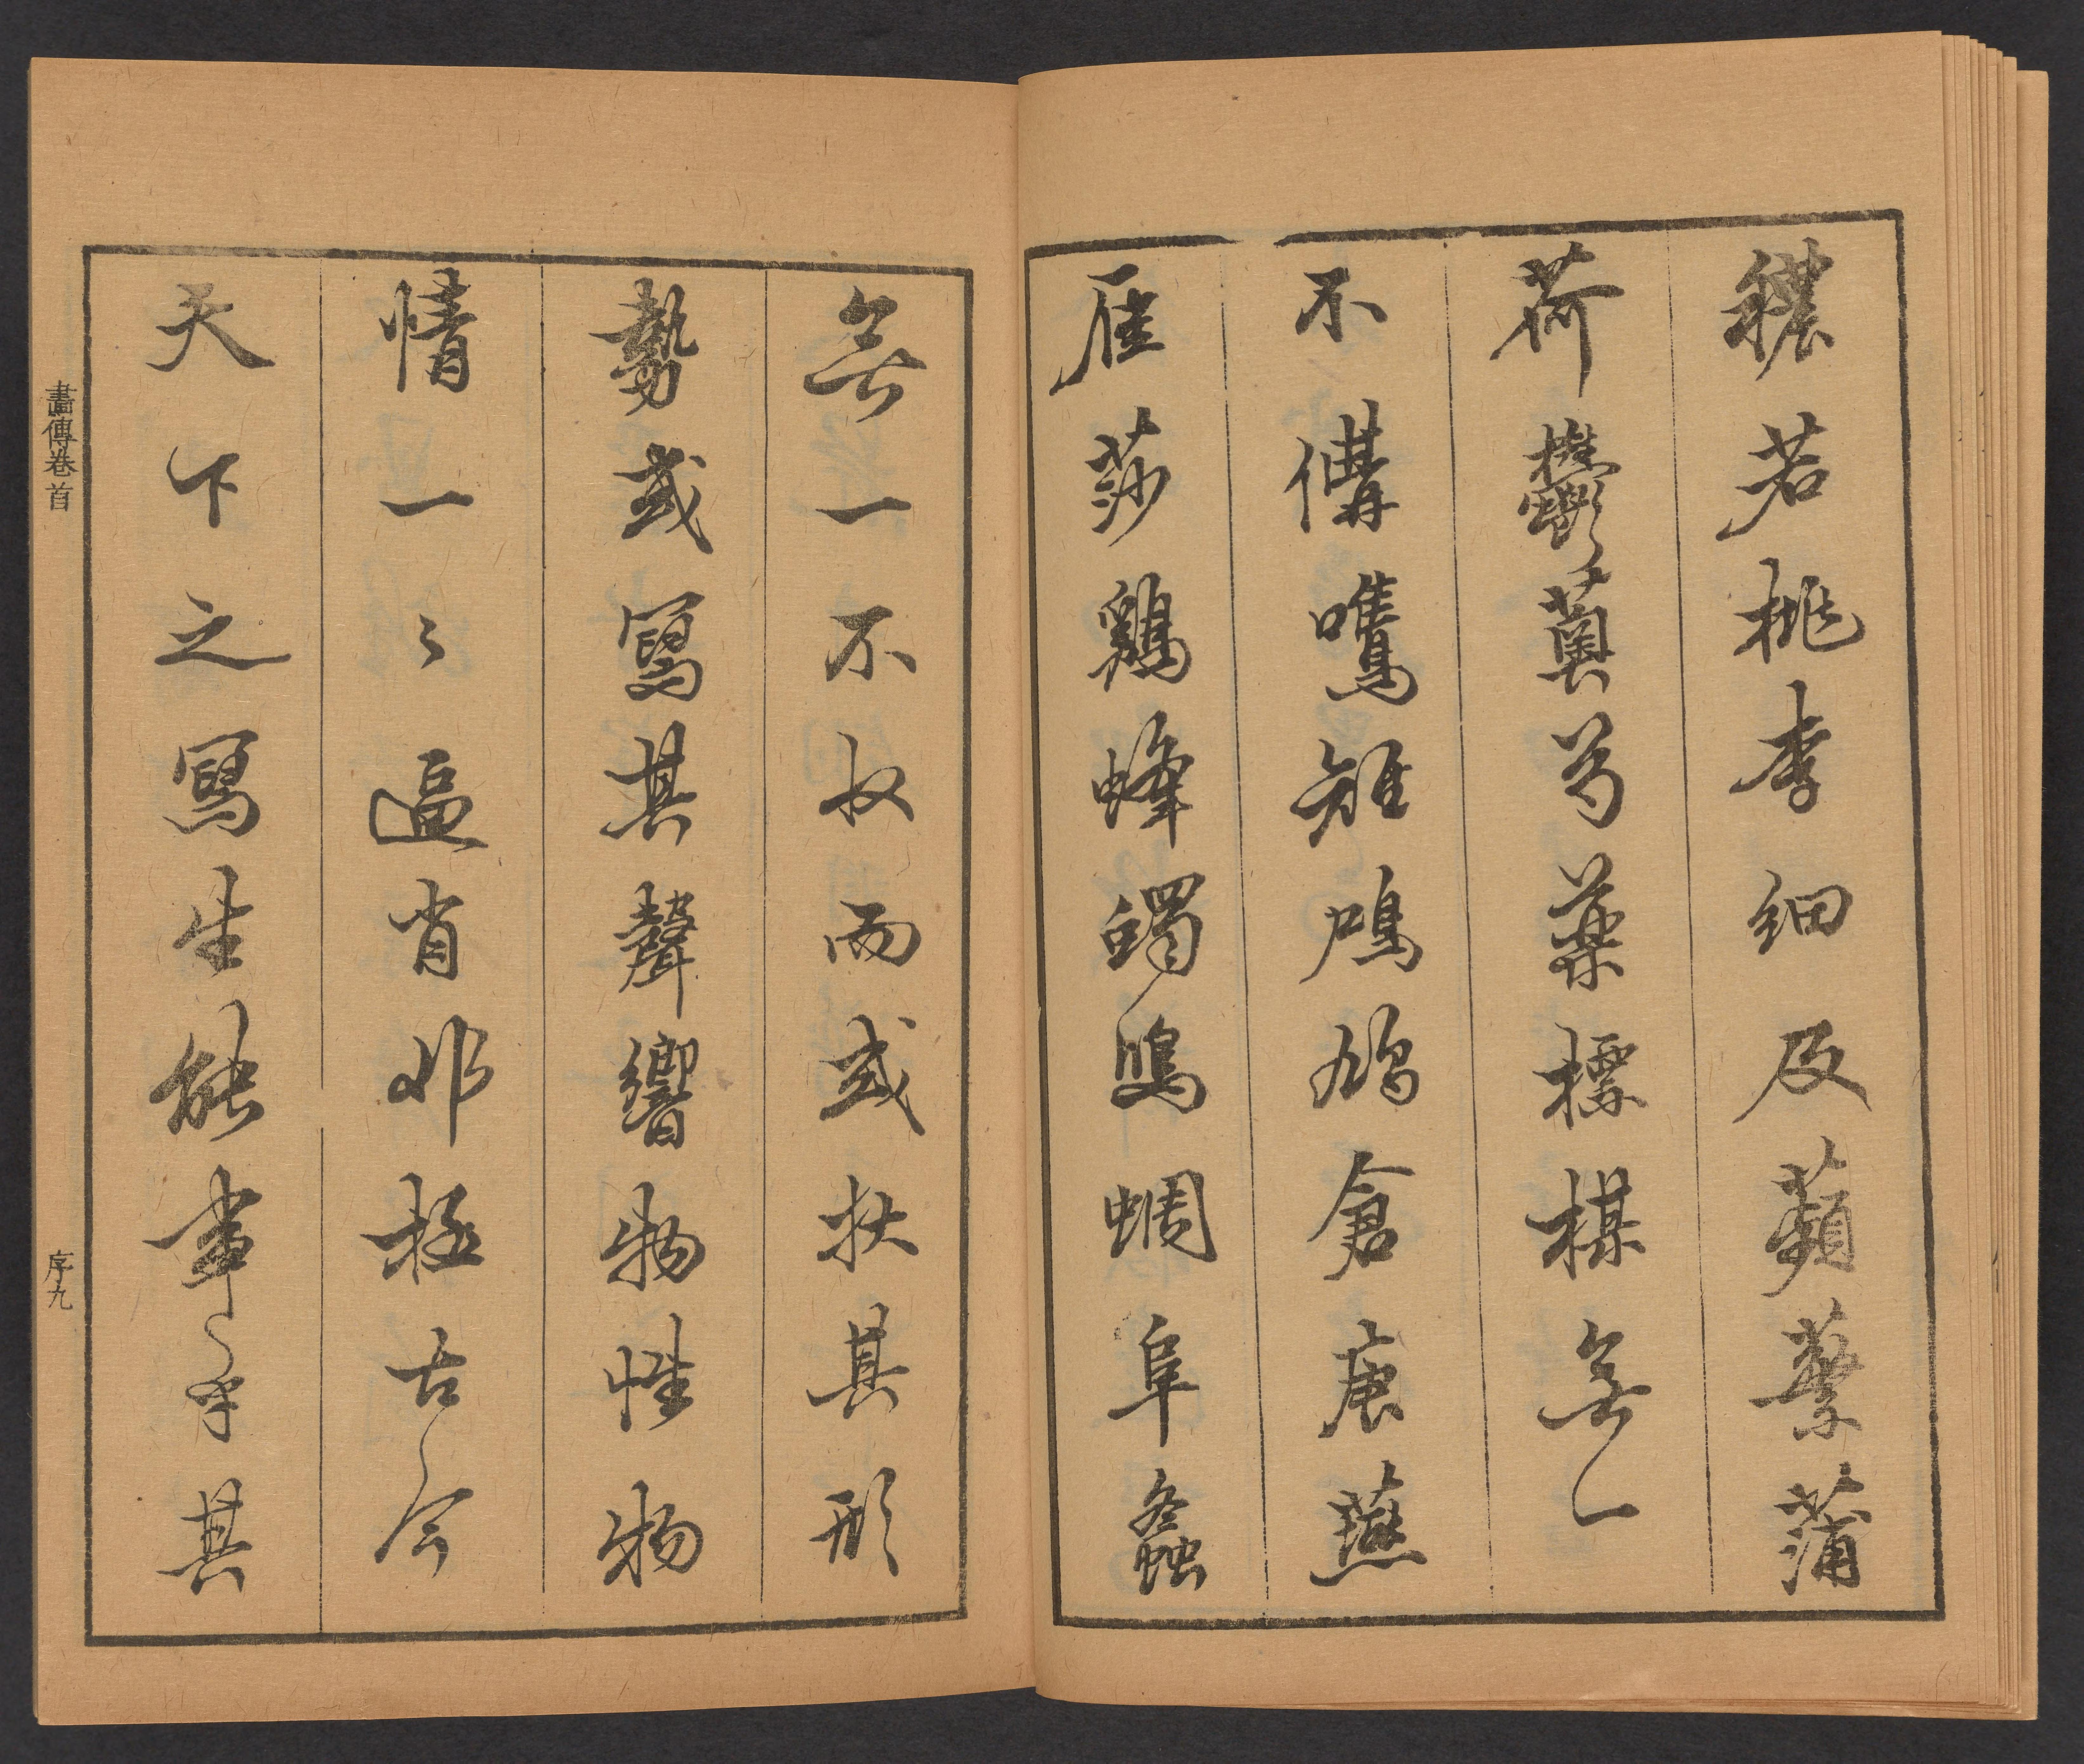 穠若桃李細及蘋蘩蒲
荷鬱薁芍藥摽楳無一
不備鳴鳩倉庚燕
雁莎鷄蜂蠋鴡蜩阜螽
無一不收而或狀其形
勢或寫其聲響物性物
情一〻逼肖非極古今
天下之寫生能事乎其
畫傳卷首
序九